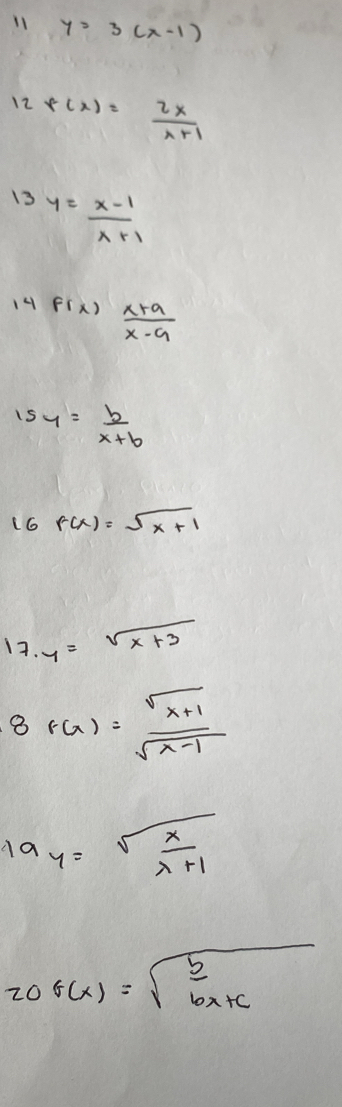 11 y = 3 (x-1)
12 f(x) = 2x / x+1
13 y = x-1 / x+1
14 f(x) x+a / x-a
15 y = b / x+b
16 f(x) = √x+1
17. y = √x+3
8 f(x) = √x+1 / √x-1
19 y = √x / x+1
20 f(x) = √b / bx+c